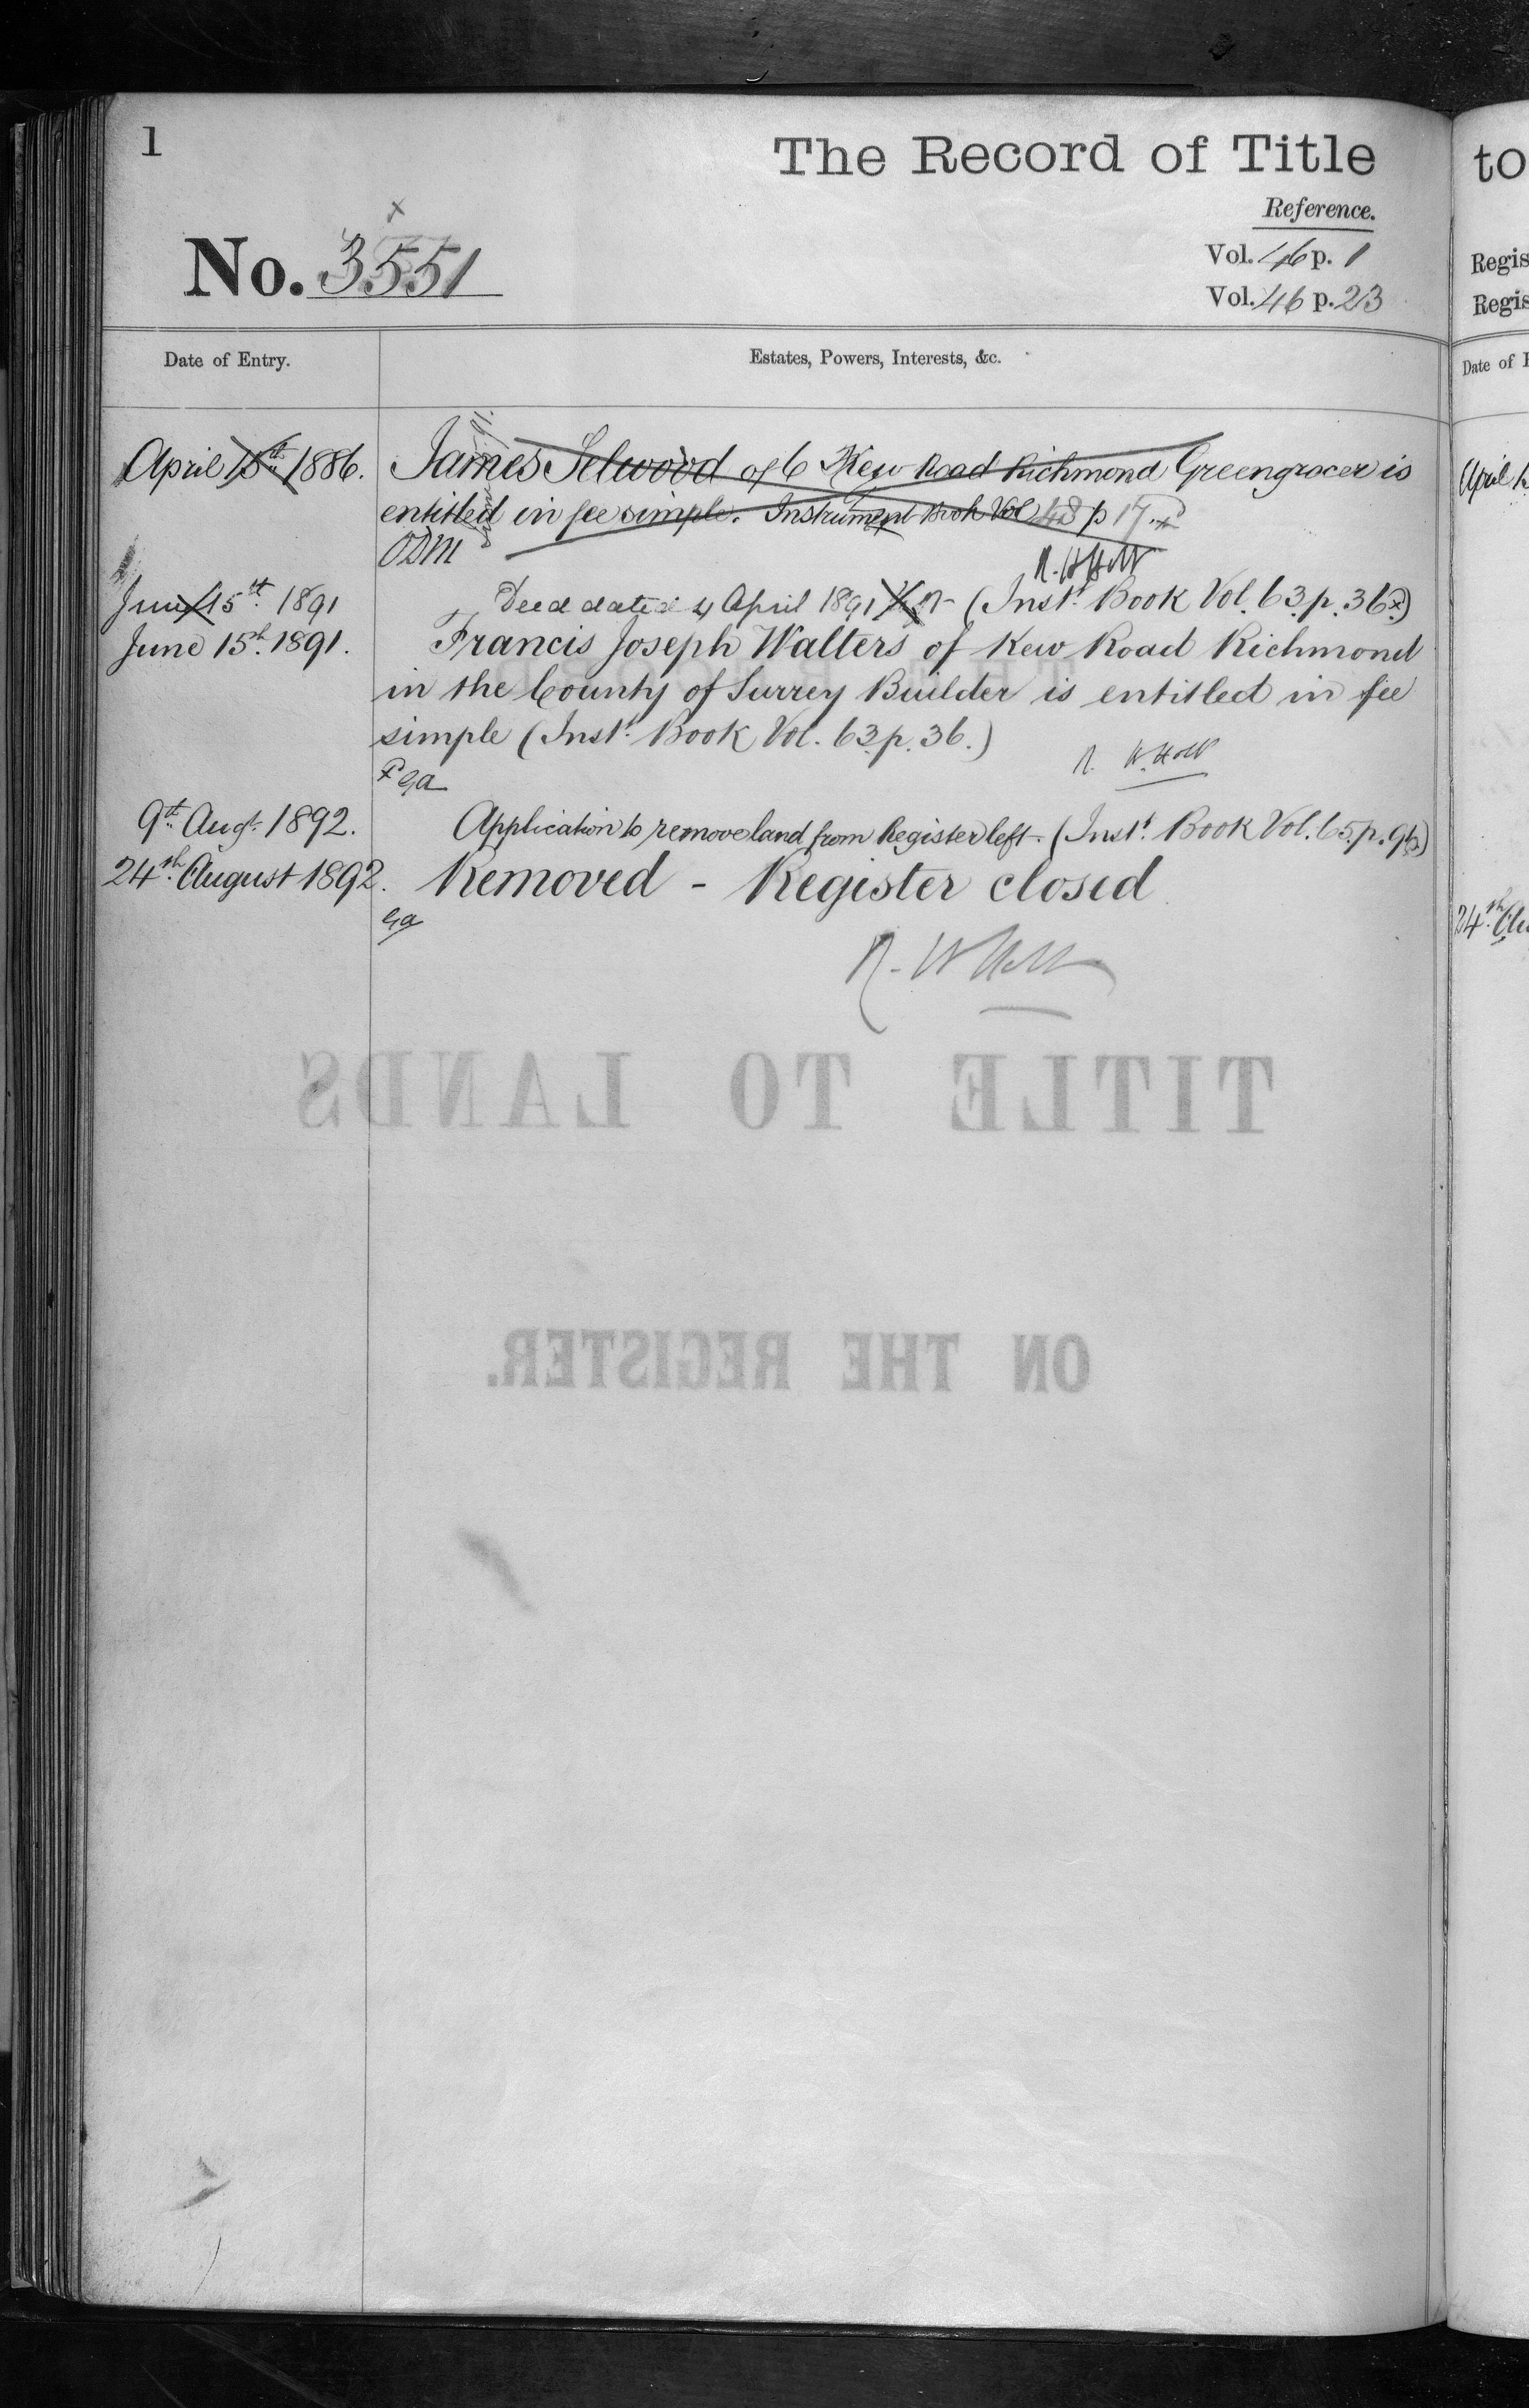 1
The Record of Title
to
Reference.
No. 3551
Vol. 46 p. 1
Vol. 46 p. 23
Regis
Regis
Date of Entry.
Estates, Powers, Interests, &c.
Date of
April 15th 1886.
James Selwood of 6 Kew Road Richmond Greengrocer is
entitled in fee simple. Instrument Book Vol 48 p 17.
ODM
June 15th 1891
Deed dated 4 April 1891 (Inst. Book Vol. 63. p. 36)
June 15th 1891.
Francis Joseph Walters of Kew Road Richmond
in the County of Surrey Builder is entitled in fee
simple (Inst. Book Vol. 63. p. 36.)
R. W. Holt
9th Augt. 1892.
Application to remove land from Register left. (Inst. Book Vol. 65. p. 96)
24th August 1892.
Removed - Register closed
R. W Holt
TITLE TO LANDS
ON THE REGISTER.